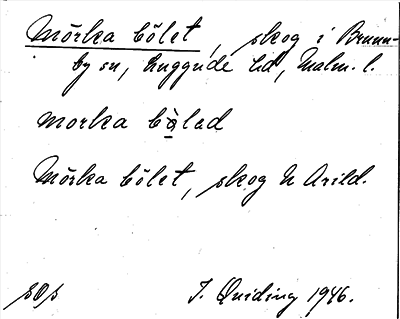 Mörka bölet, skog i Brunn-
by sn, Luggude hd, Malm. l.
morka bòlad
Mörka bölet, skog N Arild.
sOs J. Quiding 1946.